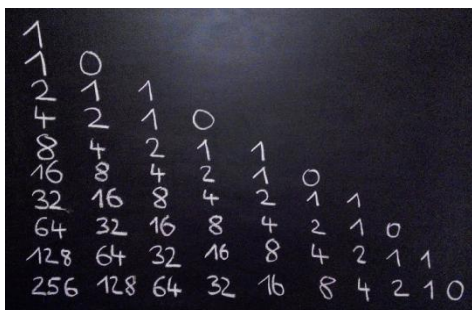 1
1 0
2 1 1
4 2 1 0
8 4 2 1 1
16 8 4 2 1 0
32 16 8 4 2 1 1
64 32 16 8 4 2 1 0
128 64 32 16 8 4 2 1 1
256 128 64 32 16 8 4 2 1 0